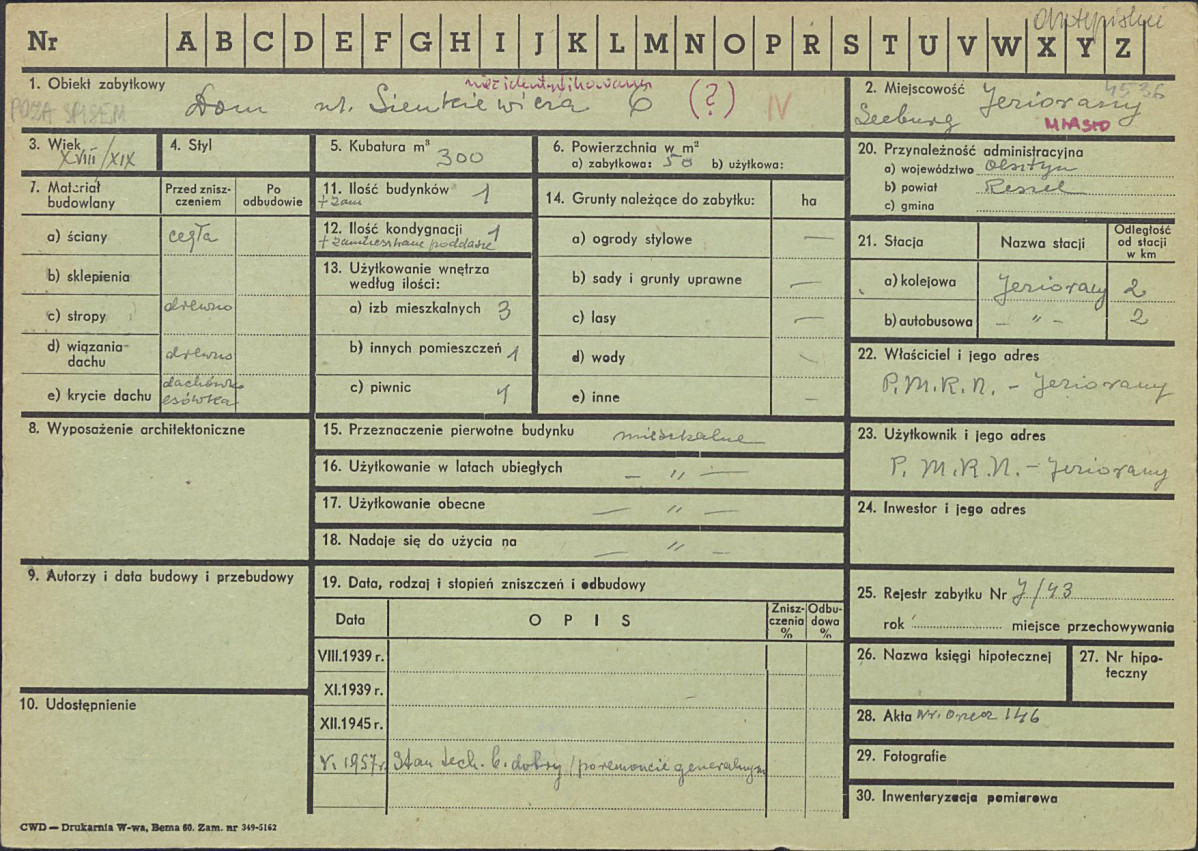 Nr A B C D E F G H I J K L M N O P R S T U V W X Y Z
1. Obiekt zabytkowy
niezidentyfikowany
POZA SPISEM
Dom ul. Sienkiewicza 6 (?) IV
2. Miejscowość Jeziorany
4536
Seeburg
MIASTO
3. Wiek
XVIII/XIX
4. Styl
5. Kubatura m³ 300
6. Powierzchnia w m²
a) zabytkowa: 50 b) użytkowa:
20. Przynależność administracyjna
a) województwo Olsztyn
b) powiat Reszel
c) gmina
7. Materiał budowlany
Przed zniszczeniem
Po odbudowie
a) ściany cegła
b) sklepienia
c) stropy drewno
d) wiązania dachu drewno
e) krycie dachu dachówka esówka
11. Ilość budynków 1
12. Ilość kondygnacji 1
+ zamieszkane poddasze
13. Użytkowanie wnętrza
według ilości:
a) izb mieszkalnych 3
b) innych pomieszczeń 1
c) piwnic 1
14. Grunty należące do zabytku: ha
a) ogrody stylowe —
b) sady i grunty uprawne —
c) lasy —
d) wody —
e) inne —
21. Stacja
Nazwa stacji
Odległość od stacji w km
a) kolejowa Jeziorany 2
b) autobusowa — " — 2
22. Właściciel i jego adres
P.M.R.N. - Jeziorany
8. Wyposażenie architektoniczne
15. Przeznaczenie pierwotne budynku mieszkalne
16. Użytkowanie w latach ubiegłych — " —
17. Użytkowanie obecne — " —
18. Nadaje się do użycia na — " —
23. Użytkownik i jego adres
P.M.R.N. - Jeziorany
24. Inwestor i jego adres
9. Autorzy i data budowy i przebudowy
19. Data, rodzaj i stopień zniszczeń i odbudowy
Data
O P I S
Zniszczenia %
Odbudowa %
VIII.1939 r.
XI.1939 r.
XII.1945 r.
V. 1957 r. Stan tech. b. dobry /po remoncie generalnym
25. Rejestr zabytku Nr J/43
rok miejsce przechowywania
26. Nazwa księgi hipotecznej
27. Nr hipoteczny
10. Udostępnienie
28. Akta 146
29. Fotografie
30. Inwentaryzacja pomiarowa
CWD — Drukarnia W-wa, Bema 60. Zam. nr 349-5162